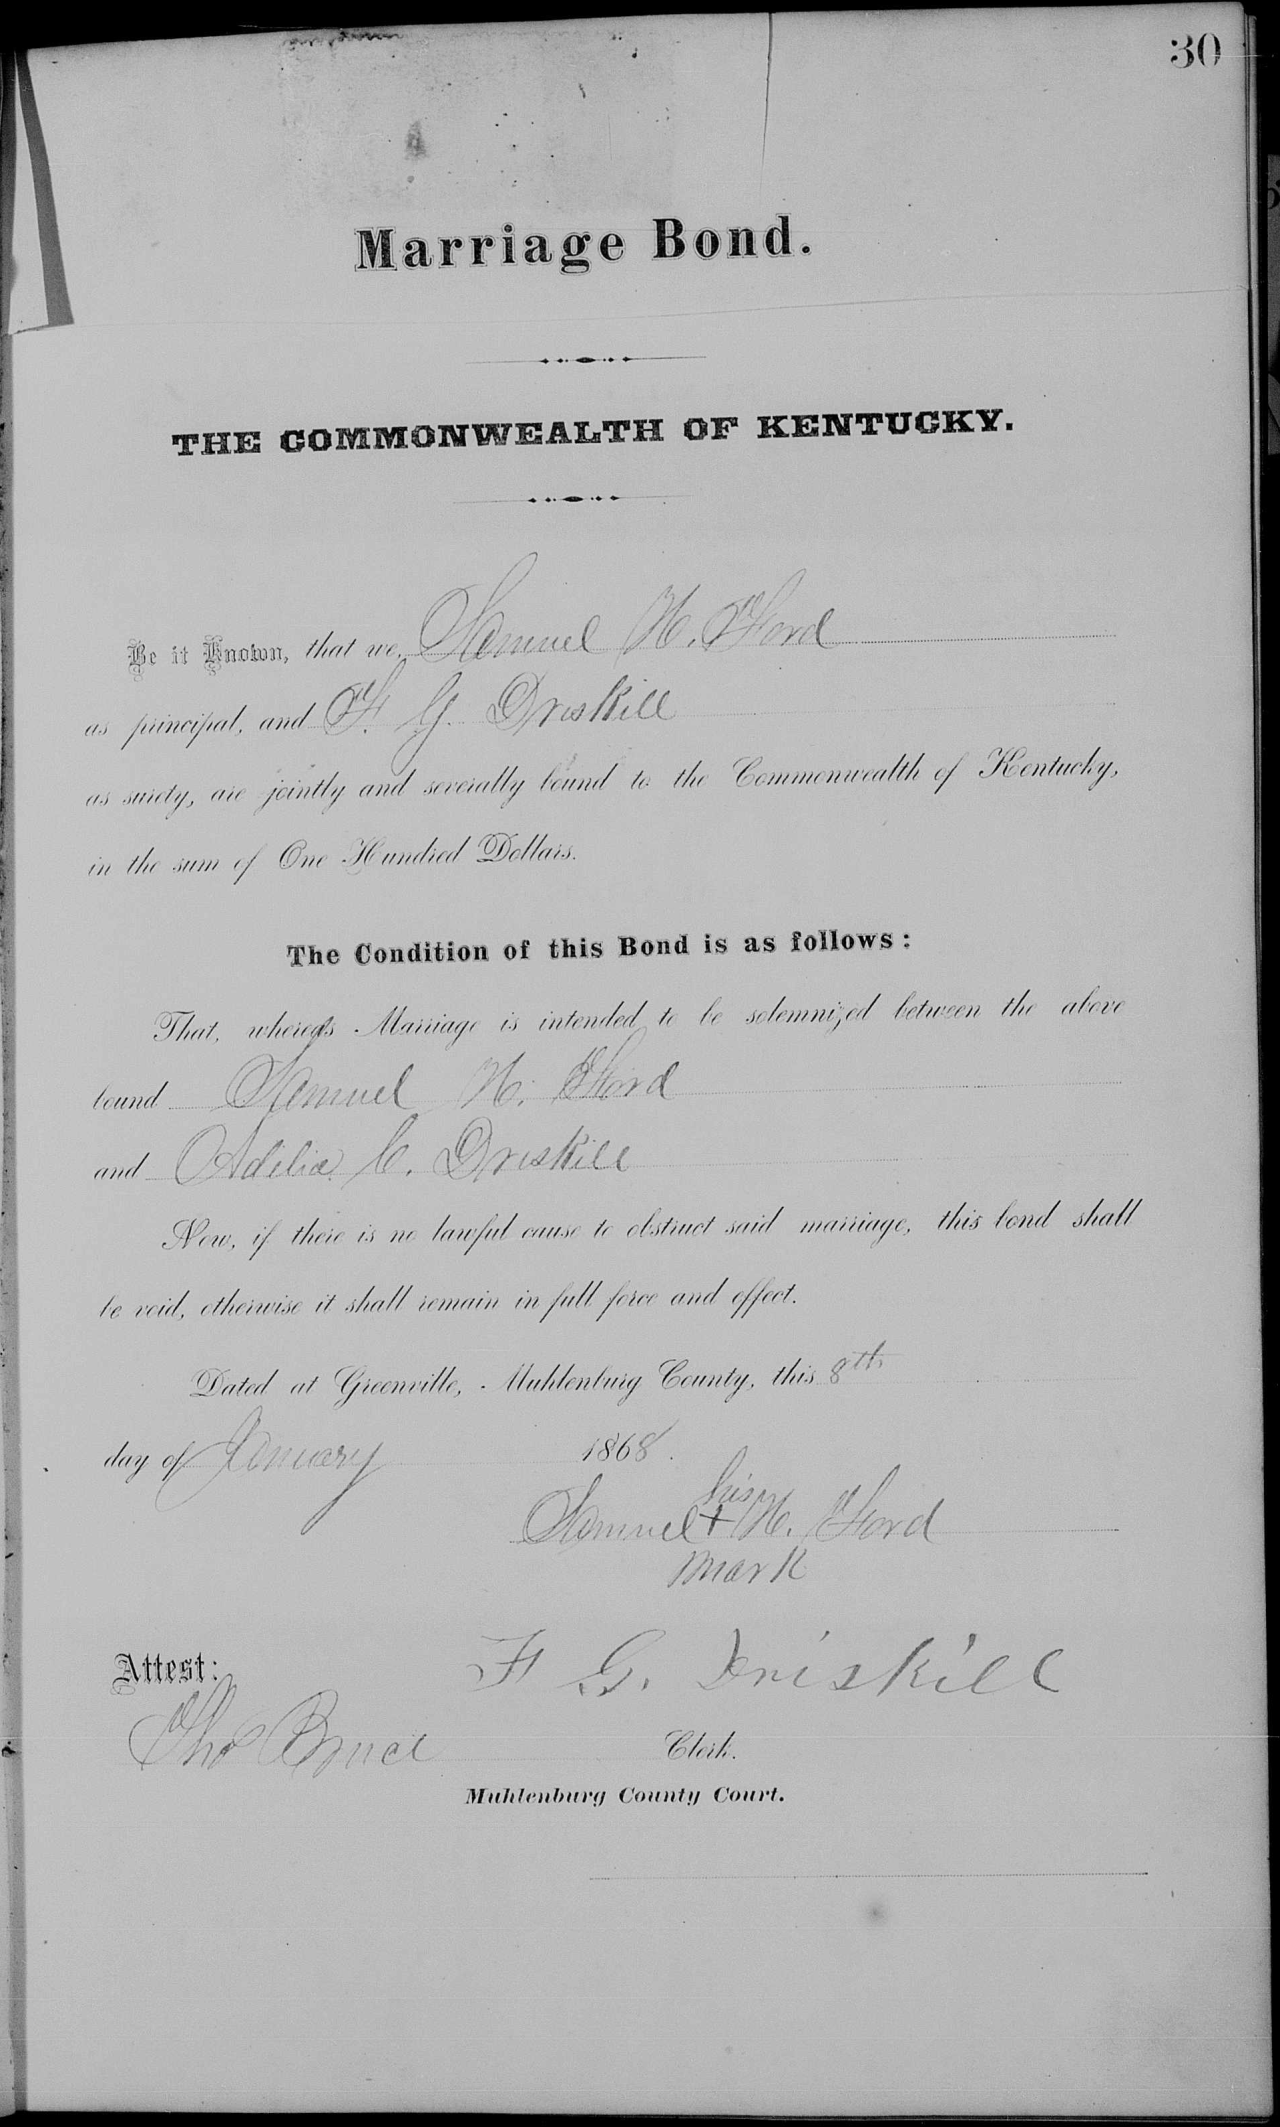 30
Marriage Bond.
THE COMMONWEALTH OF KENTUCKY.
Be it Known, that we, Samuel H. Ford
as principal, and F. G. Driskill
as surety, are jointly and severally bound to the Commonwealth of Kentucky,
in the sum of One Hundred Dollars.
The Condition of this Bond is as follows:
That, whereas Marriage is intended to be solemnized between the above
bound Samuel H. Ford
and Adelia C. Driskill
Now, if there is no lawful cause to obstruct said marriage, this bond shall
be void, otherwise it shall remain in full force and effect.
Dated at Greenville, Muhlenburg County, this 8th
day of January 1868.
his
Samuel + H. Ford
mark
Attest: F G. Driskill
Tho Bruce Clerk.
Muhlenburg County Court.